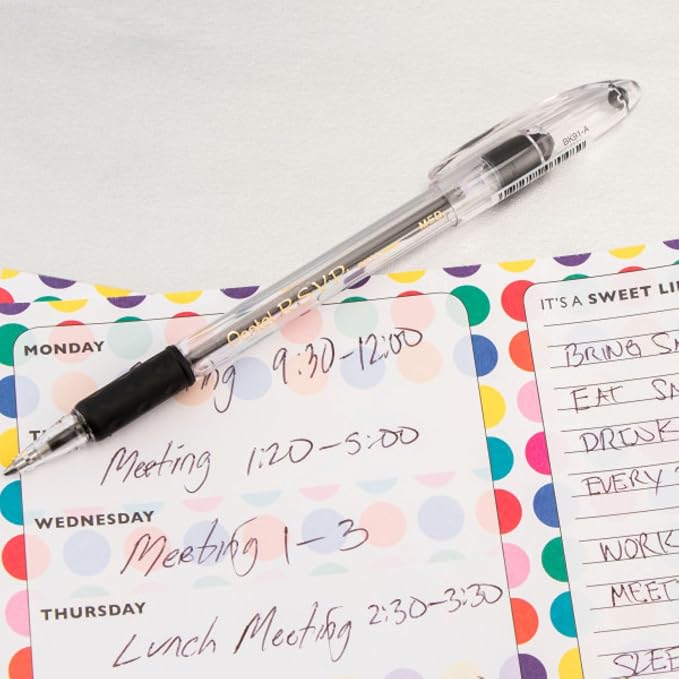 BK91-A
MED
Pentel R.S.V.P.
MONDAY
9:30-12:00
Meeting 1:20-5:00
WEDNESDAY
Meeting 1-3
THURSDAY
Lunch Meeting 2:30-3:30
IT'S A SWEET LI
BRING
EAT
DRINK
EVERY
WORK
MEET
SLEE